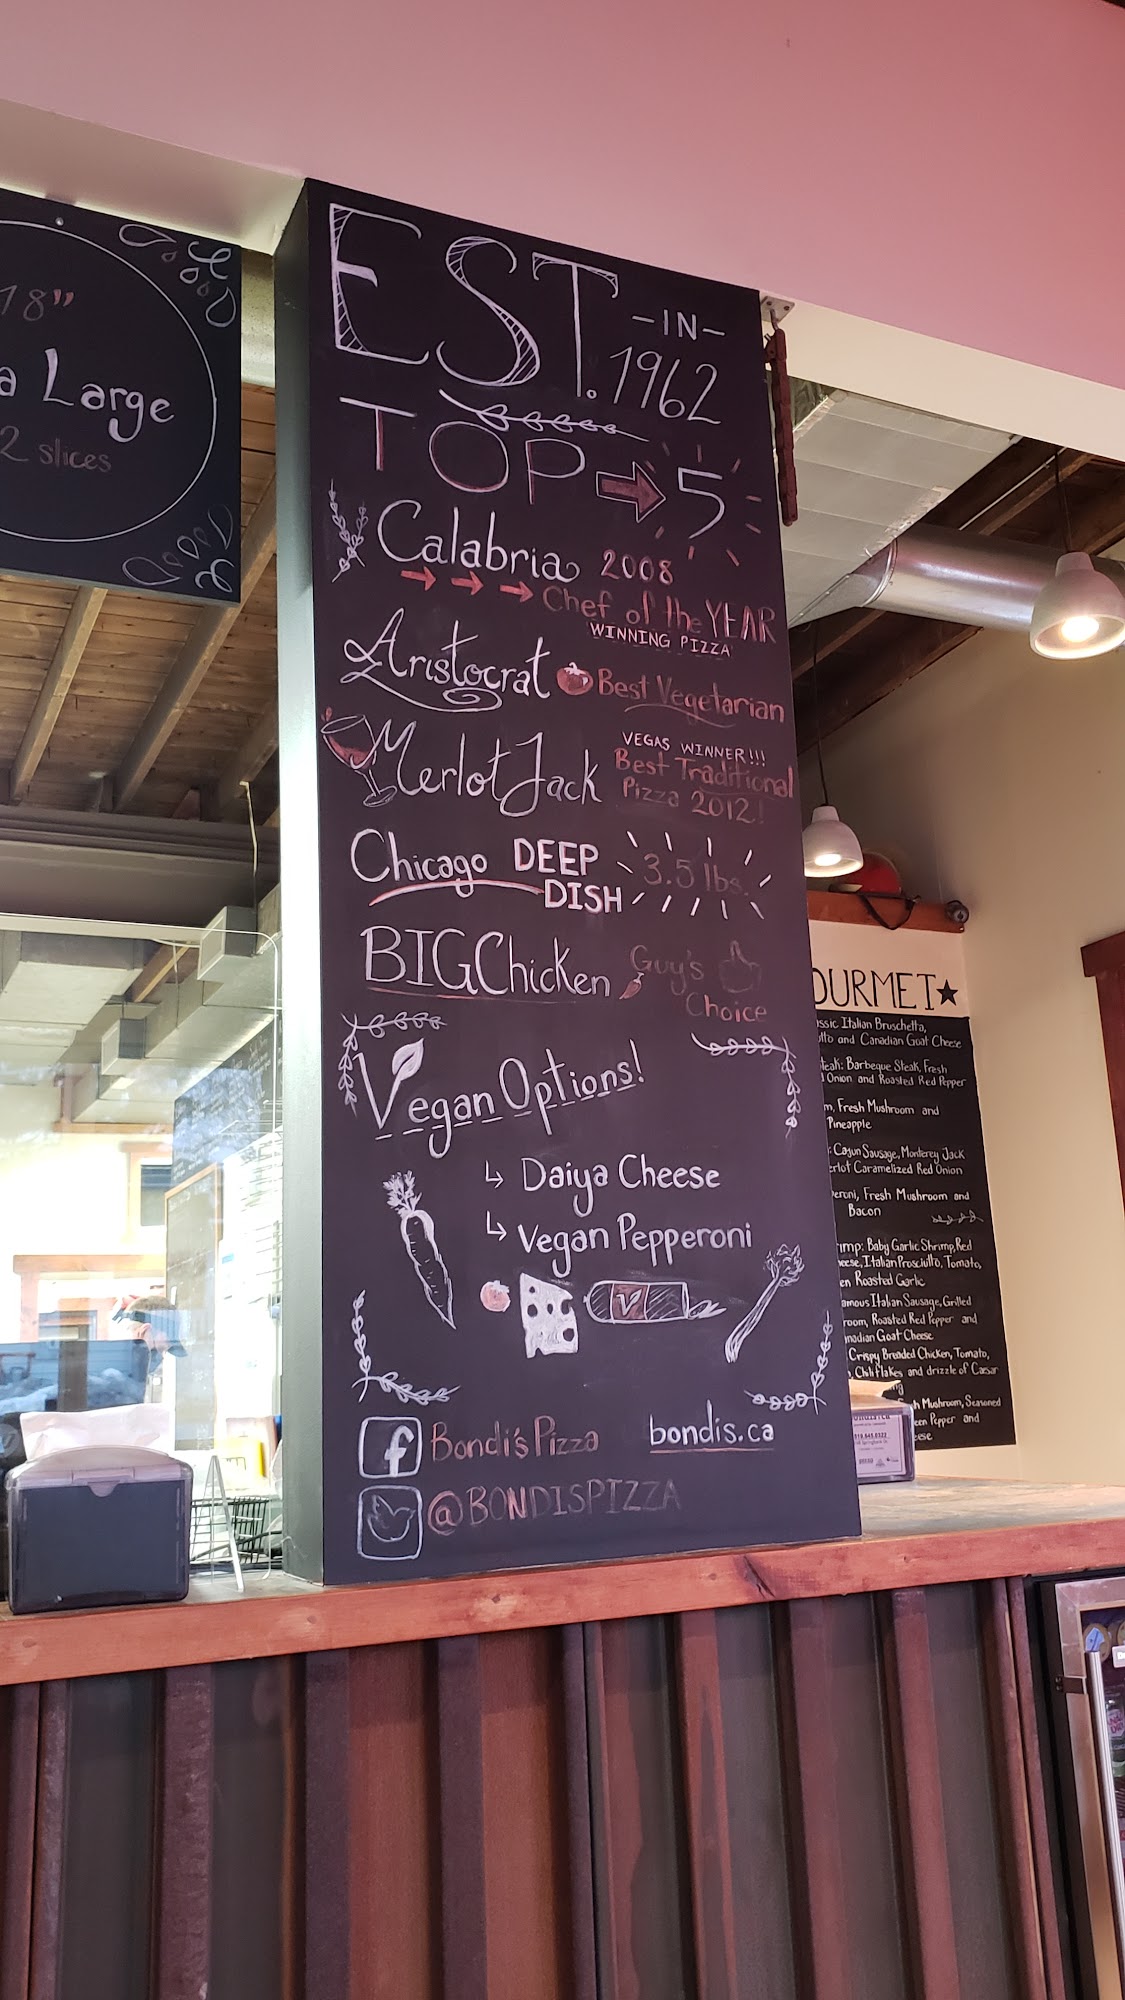 18"
Large
2 slices
EST. -IN-
1962
TOP 5
Calabria 2008
Chef of the YEAR
WINNING PIZZA
Aristocrat Best Vegetarian
Merlot Jack VEGAS WINNER!!!
Best Traditional
Pizza 2012!
Chicago DEEP
DISH 3.5 lbs.
BIG Chicken Guy's
Choice
Vegan Options!
↳ Daiya Cheese
↳ Vegan Pepperoni
V
f Bondi's Pizza bondis.ca
@BONDISPIZZA
OURMET★
Italian Bruschetta,
and Canadian Goat Cheese
Barbeque Steak, Fresh
Onion and Roasted Red Pepper
Fresh Mushroom and
Pineapple
Cajun Sausage, Monterey Jack
Caramelized Red Onion
Fresh Mushroom and
Bacon
Baby Garlic Shrimp, Red
Italian Prosciutto, Tomato,
Roasted Garlic
Italian Sausage, Grilled
Roasted Red Pepper and
Goat Cheese
Crispy Breaded Chicken, Tomato,
Chili flakes and drizzle of Caesar
Mushroom, Seasoned
Pepper and